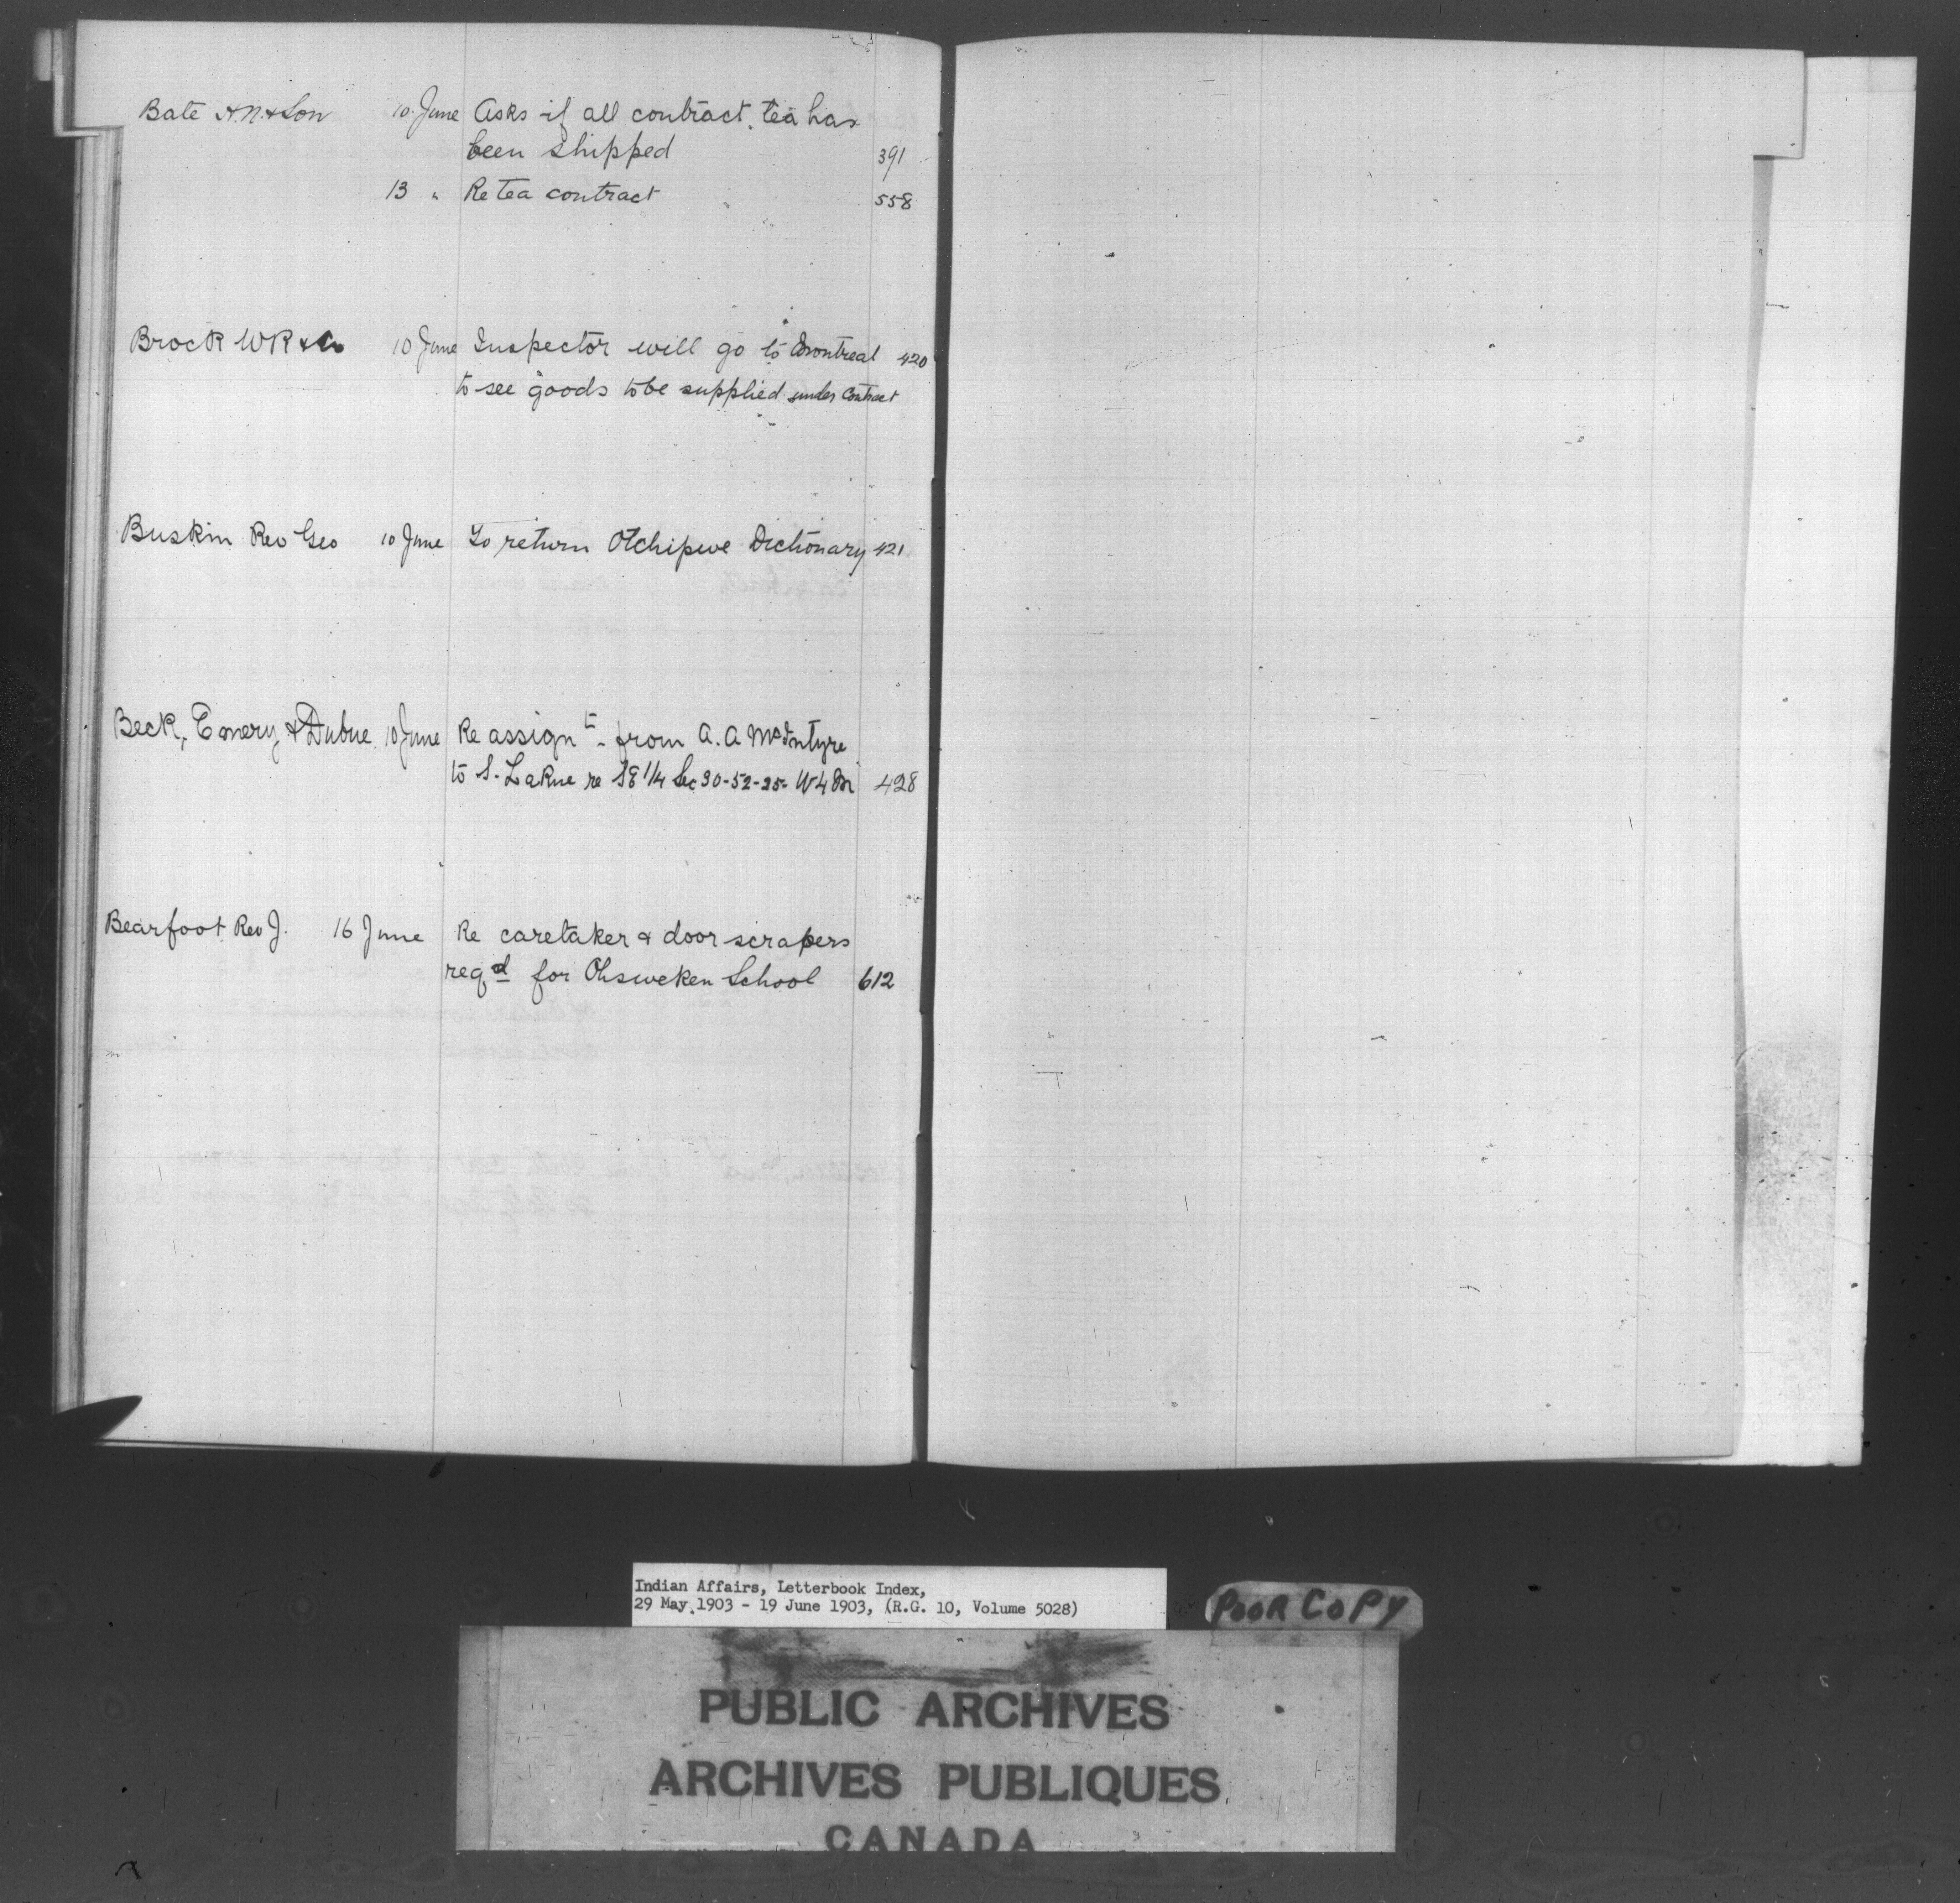 Bate H.N. & Son 10 June Asks if all contract tea has
been shipped 391
13 " Re tea contract 558
Brock WR & Co 10 June Inspector will go to Montreal 420
to see goods to be supplied under Contract
Buskin Rev Geo 10 June To return Otchipwe Dictionary 421
Beck, Emery & Dubue 10 June Re assignt. from A. A McIntyre
to S. LaRue re SE 1/4 Sec 30-52-25- W4M 428
Bearfoot Rev J. 16 June Re caretaker & door scrapers
reqd for Ohsweken School 612
Indian Affairs, Letterbook Index,
29 May 1903 - 19 June 1903, (R.G. 10, Volume 5028)
POOR COPY
PUBLIC ARCHIVES
ARCHIVES PUBLIQUES
CANADA